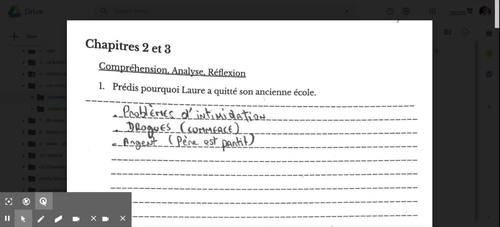 Drive
Chapitres 2 et 3
Compréhension, Analyse, Réflexion
1. Prédis pourquoi Laure a quitté son ancienne école.
- Problèmes d'intimidation
- DROGUES (COMMERCE)
- Argent (Père est partit)